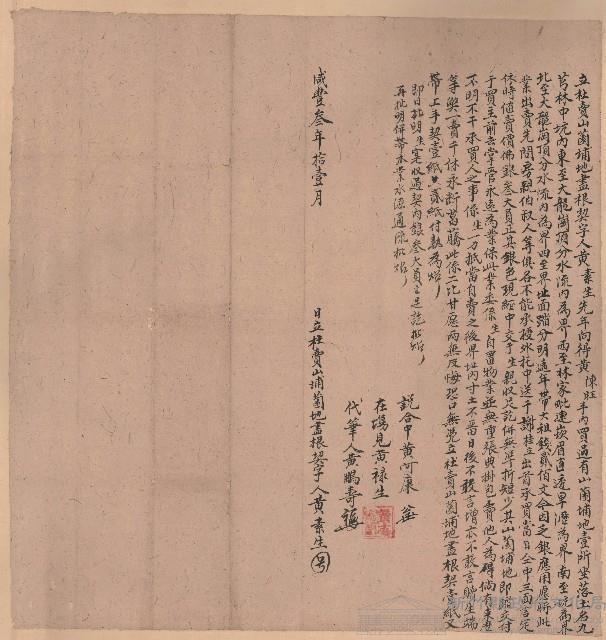 立杜賣山崗埔地盡根契字人黃素生先年向得黃陳旺手內買過有山崗埔地壹所坐落土名九
芎林中坑內東至大龍崗頂分水流內為界西至林家毗連崁眉直透旱瀝為界南至坑為界
北至大壠崗頂分水流內為界四至界址面踏分明遞年帶大租錢貳佰文今因乏銀應用愿將此
業出賣先問房親伯叔人等俱各不能承授外托中送于謝桂立出首承買當日仝中三面言定
依時值賣價佛銀叁大員正其銀色現經中交于生親收足訖併無準折短少其山崗埔地即踏交付
于買主前去掌管永遠為業保此業委係生自置物業並無重張典掛包賣他人為碍倘有來歷
不明不干承買人之事係生一力抵當自賣之後界址內寸土不留日後不敢言增亦不敢言贖生端
等獘一賣千休永斷葛藤此係二比甘愿兩無反悔恐口無憑立杜賣山崗埔地盡根契壹紙又
帶上手契壹紙共貳紙付執為炤
即日批明生寔收過契內銀叁大員正足訖批炤
再批明併帶本業水源通流批炤
說合中黃阿康
在場見黃祿生
代筆人黃鵬壽
咸豐叁年拾壹月 日立杜賣山埔崗地盡根契字人黃素生